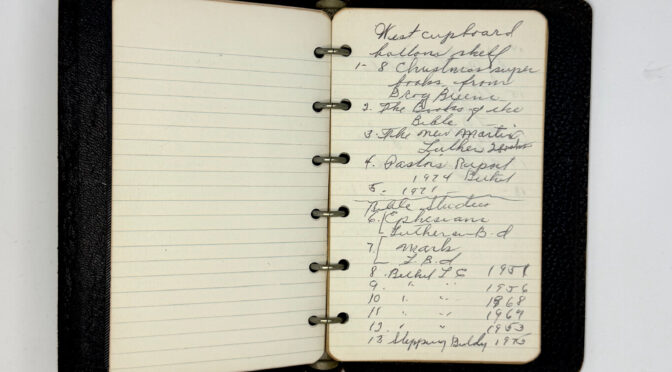 West cupboard
bottom shelf
1- 8 Christmas super
books from
2. The Books of the
Bible
3. The new Martin
Luther
4. Pastor's Report
1974 Bethel
5. " 1971 "
Bible Studies
6. Ephesians
Lutheran B.d
7. Mark
L.B.d
8. Bethel L C 195
9. " " 1956
10 " " 1968
11 " " 1969
12. " " 1953
13 Stepping 1975